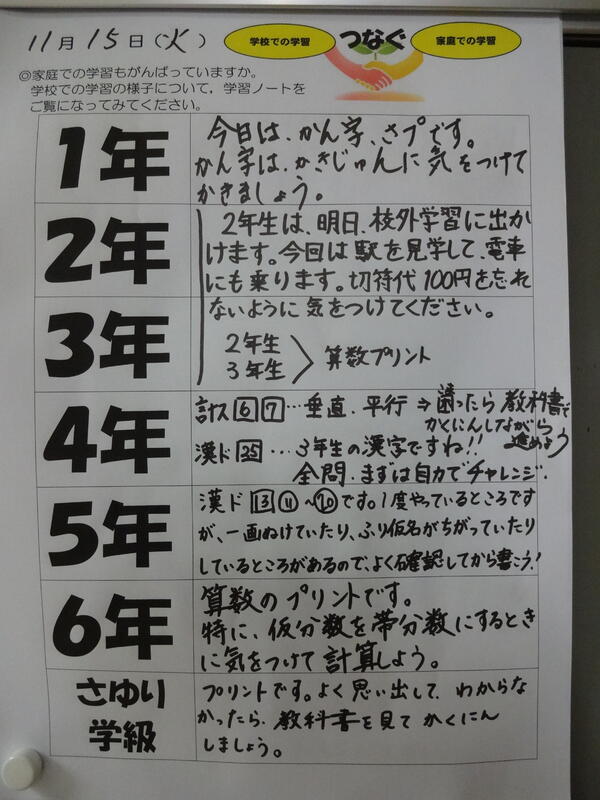 11月15日(火)
学校での学習
つなぐ
家庭での学習
◎家庭での学習もがんばっていますか。
学校での学習の様子について，学習ノートを
ご覧になってみてください。
1年
今日は、かん字、さプです。
かん字は、かきじゅんに気をつけて
かきましょう。
2年
2年生は、明日、校外学習に出か
けます。今回は駅を見学して、電車
にも乗ります。切符代100円を忘れ
ないように気をつけてください。
3年
2年生
3年生
算数プリント
4年
計ス 6 7 …垂直．平行 ⇒ 困ったら教科書で
かくにんしながら
進めよう
漢ド 25 …3年生の漢字ですね!!
全問．まずは自力でチャレンジ．
5年
漢ド 13 ⑪ ~ ⑳ です。1度やっているところです
が、一画ぬけていたり、ふり仮名がちがっていたり
しているところがあるので、よく確認してから書こう!
6年
算数のプリントです。
特に、仮分数を帯分数にするとき
に気をつけて計算しよう。
さゆり
学級
プリントです。よく思い出して、わからな
かったら、教科書を見てかくにん
しましょう。